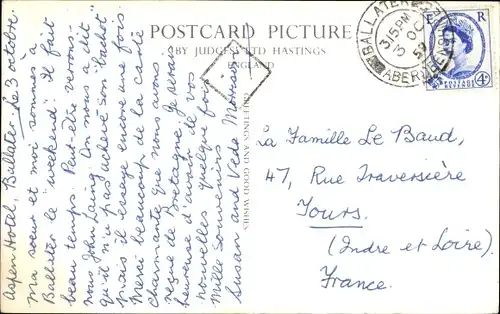 POSTCARD PICTURE
BY JUDGES LTD HASTINGS
ENGLAND
GREETINGS AND GOOD WISHES
BALLATER
3 15 PM
3 OC
59
ABERDEENSHIRE
E R
POSTAGE REVENUE
4D
Aspen Hotel, Ballater le 3 octobre
Ma soeur et moi sommes à
Ballater le "weekend". Il fait
beau temps. Peut-être verrons-
nous John Laing. On nous a dit
qu'il n'a pas achevé son "bachot"
mais il essaye encore une fois.
Merci beaucoup de la carte
charmante que nous avons
reçue de Bretagne. Je serais
heureuse d'avoir de vos
nouvelles quelque fois.
Mille Souvenirs
Susan and Veda
La Famille Le Baud,
47, Rue Traversière
Tours.
(Indre et Loire).
France.